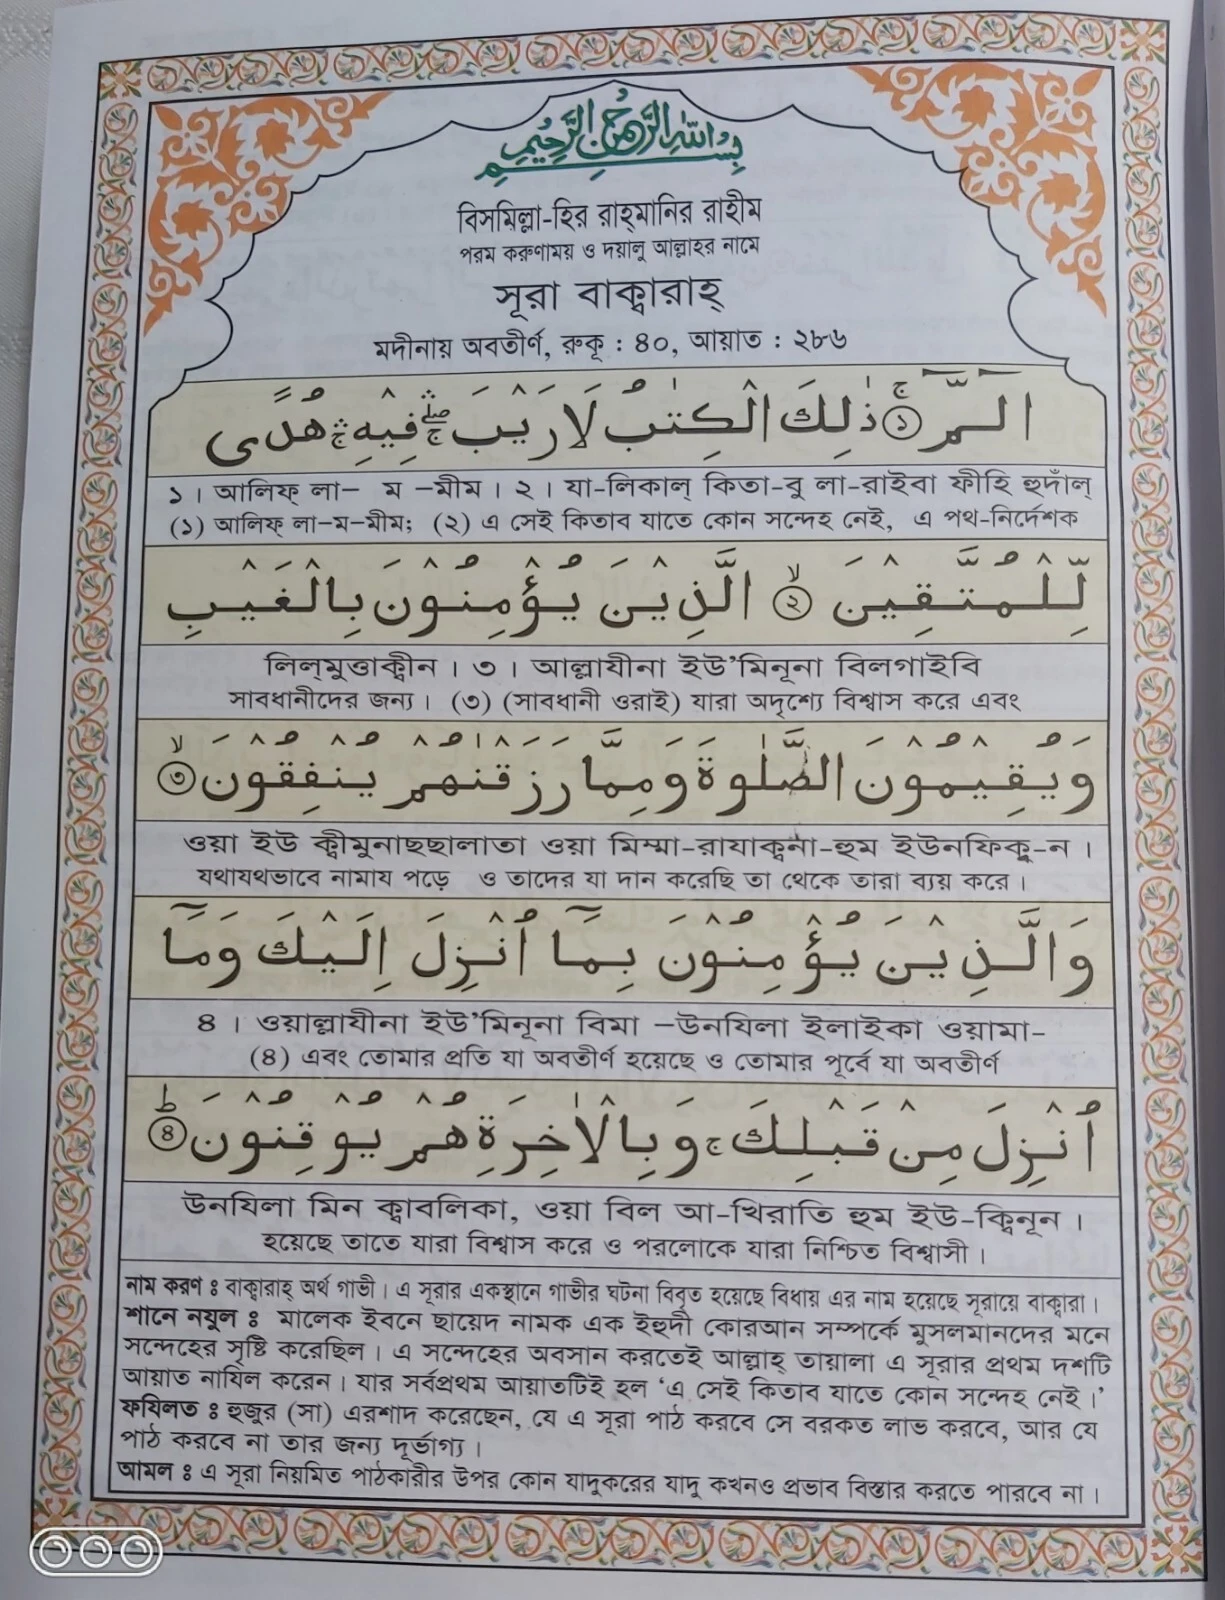 بِسْمِ اللّٰهِ الرَّحْمٰنِ الرَّحِيْمِ
বিসমিল্লা-হির রাহ্‌মানির রাহীম
পরম করুণাময় ও দয়ালু আল্লাহর নামে
সূরা বাক্বারাহ্
মদীনায় অবতীর্ণ, রুকূ : ৪০, আয়াত : ২৮৬
الٓـمّٓ ۚ ﴿১﴾ ذٰلِكَ الْكِتٰبُ لَا رَيْبَ ۛۖۚ فِيْهِ ۛۚ هُدًى
১। আলিফ্ লা— ম —মীম। ২। যা-লিকাল্ কিতা-বু লা-রাইবা ফীহি হুদাঁল্
(১) আলিফ্ লা-ম-মীম; (২) এ সেই কিতাব যাতে কোন সন্দেহ নেই, এ পথ-নির্দেশক
لِّلْمُتَّقِيْنَ ﴿২﴾ۙ الَّذِيْنَ يُؤْمِنُوْنَ بِالْغَيْبِ
লিল্‌মুত্তাক্বীন। ৩। আল্লাযীনা ইউ’মিনূনা বিলগাইবি
সাবধানীদের জন্য। (৩) (সাবধানী ওরাই) যারা অদৃশ্যে বিশ্বাস করে এবং
وَيُقِيْمُوْنَ الصَّلٰوةَ وَمِمَّا رَزَقْنٰهُمْ يُنْفِقُوْنَ ﴿৩﴾ۙ
ওয়া ইউ ক্বীমুনাছছালাতা ওয়া মিম্মা-রাযাক্বনা-হুম ইউনফিকূ-ন।
যথাযথভাবে নামায পড়ে ও তাদের যা দান করেছি তা থেকে তারা ব্যয় করে।
وَالَّذِيْنَ يُؤْمِنُوْنَ بِمَآ اُنْزِلَ اِلَيْكَ وَمَآ
৪। ওয়াল্লাযীনা ইউ’মিনূনা বিমা —উনযিলা ইলাইকা ওয়ামা-
(৪) এবং তোমার প্রতি যা অবতীর্ণ হয়েছে ও তোমার পূর্বে যা অবতীর্ণ
اُنْزِلَ مِنْ قَبْلِكَ ۚ وَبِالْاٰخِرَةِ هُمْ يُوْقِنُوْنَ ﴿৪﴾ؕ
উনযিলা মিন ক্বাবলিকা, ওয়া বিল আ-খিরাতি হুম ইউ-ক্বিনূন।
হয়েছে তাতে যারা বিশ্বাস করে ও পরলোকে যারা নিশ্চিত বিশ্বাসী।
নাম করণ ঃ বাক্বারাহ্ অর্থ গাভী। এ সূরার একস্থানে গাভীর ঘটনা বিবৃত হয়েছে বিধায় এর নাম হয়েছে সূরায়ে বাক্বারা।
শানে নযূল ঃ মালেক ইবনে ছায়েদ নামক এক ইহুদী কোরআন সম্পর্কে মুসলমানদের মনে
সন্দেহের সৃষ্টি করেছিল। এ সন্দেহের অবসান করতেই আল্লাহ্ তায়ালা এ সূরার প্রথম দশটি
আয়াত নাযিল করেন। যার সর্বপ্রথম আয়াতটিই হল ‘এ সেই কিতাব যাতে কোন সন্দেহ নেই।’
ফযিলত ঃ হুজুর (সা) এরশাদ করেছেন, যে এ সূরা পাঠ করবে সে বরকত লাভ করবে, আর যে
পাঠ করবে না তার জন্য দূর্ভাগ্য।
আমল ঃ এ সূরা নিয়মিত পাঠকারীর উপর কোন যাদুকরের যাদু কখনও প্রভাব বিস্তার করতে পারবে না।